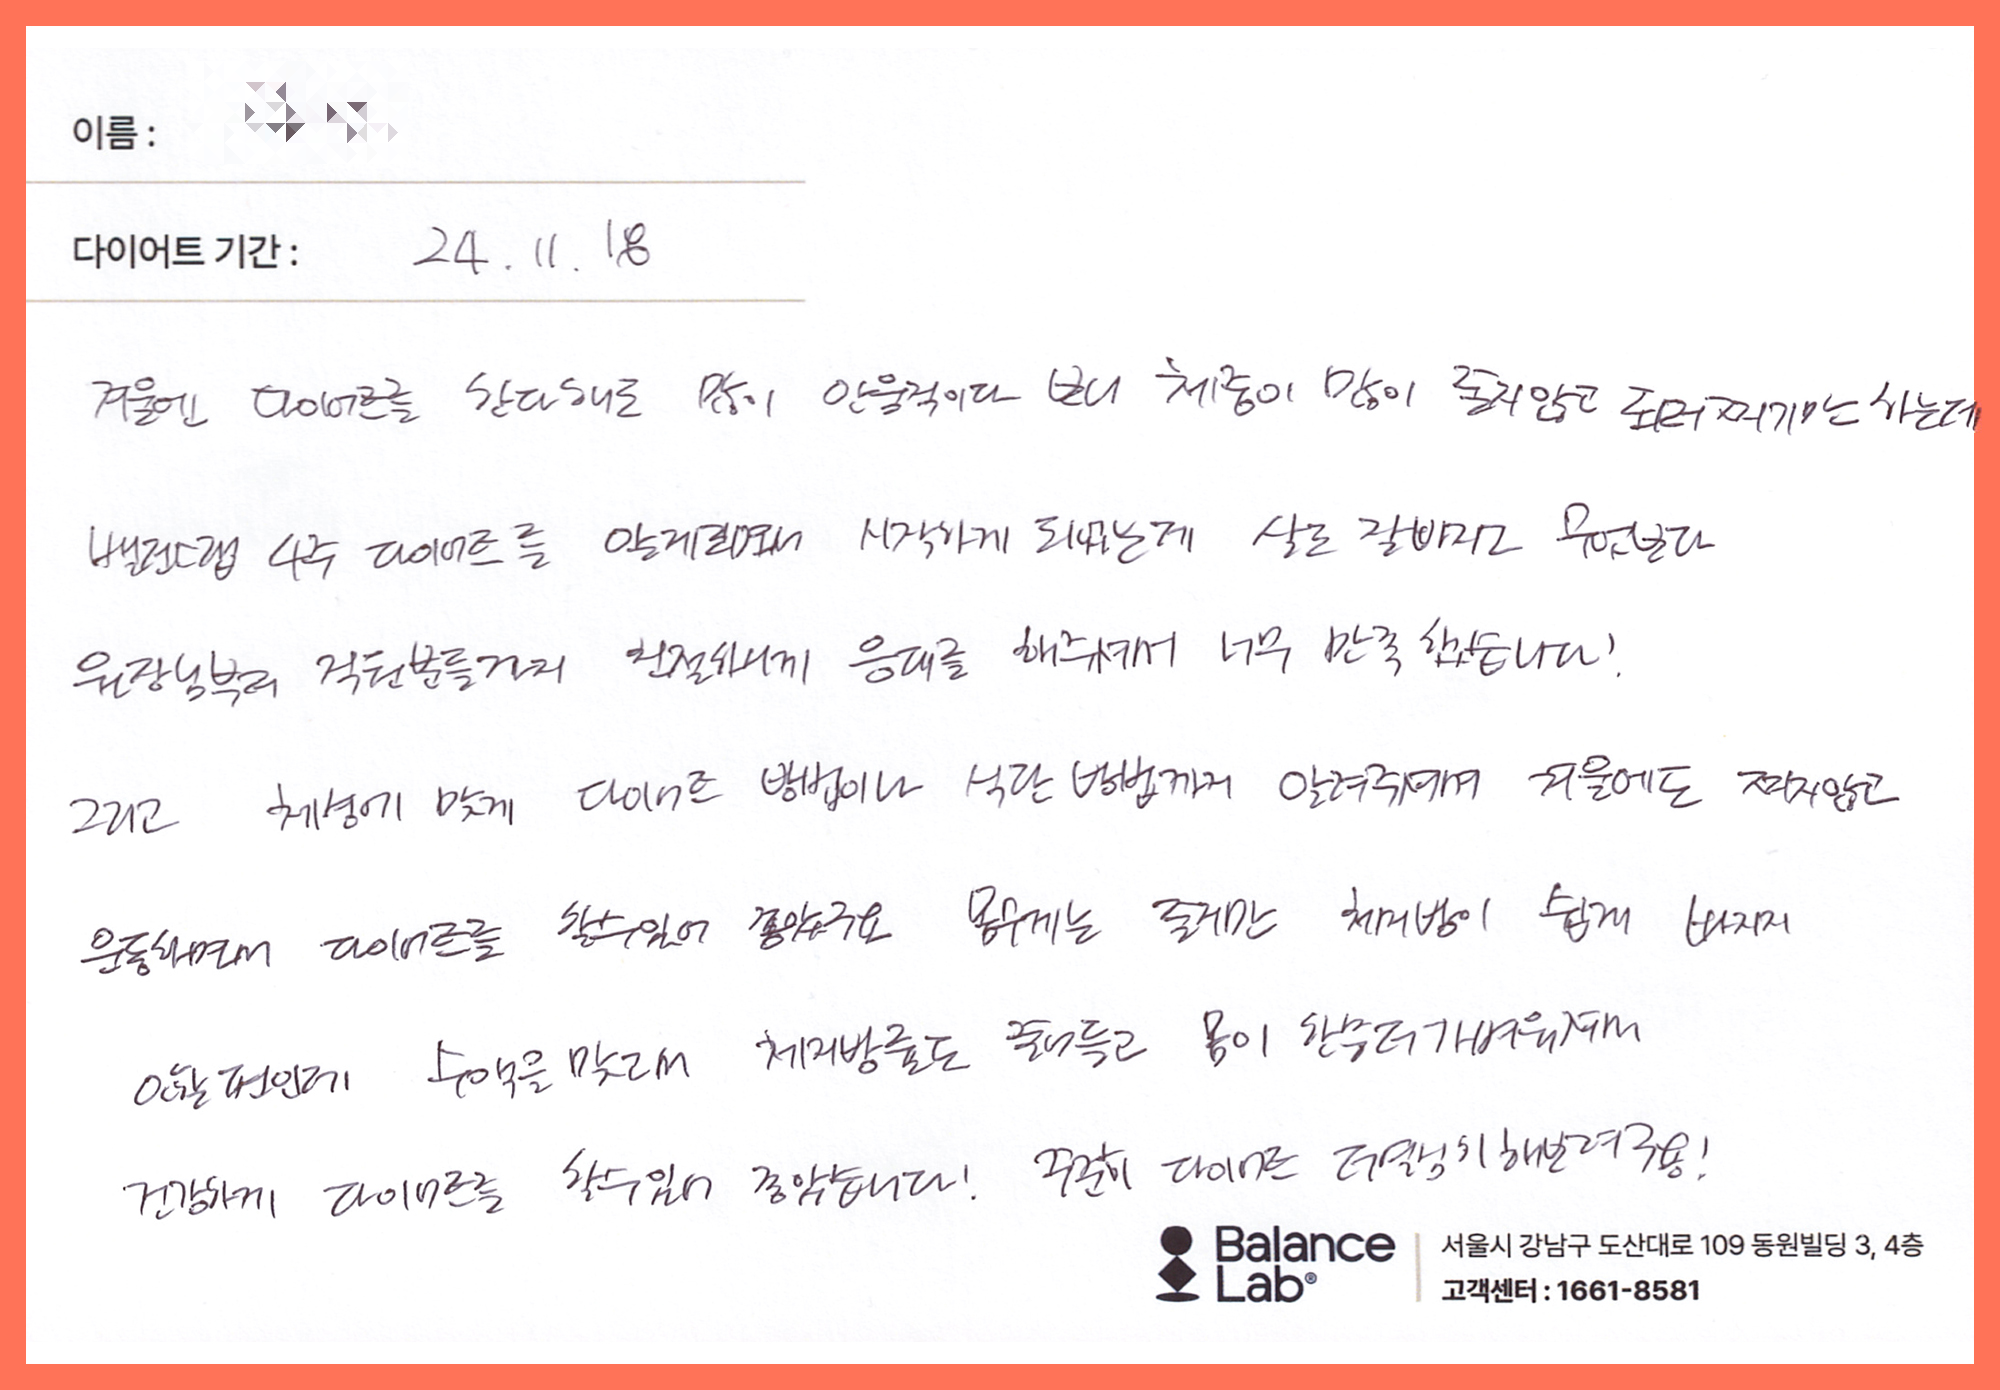 이름 :
다이어트 기간 : 24. 11. 18
겨울엔 다이어트를 한다해도 많이 안움직이다 보니 체중이 많이 줄지않고 되려 찌기만 하는데
밸런스랩 4주 다이어트를 알게되면서 시작하게 되었는데 살도 잘빠지고 무엇보다
원장님부터 직원분들까지 친절하시게 응대를 해주셔서 너무 만족 했습니다!
그리고 체형에 맞게 다이어트 방법이나 식단 방법까지 알려주셔서 겨울에도 찌지않고
운동하면서 다이어트를 할수있어 좋았구요 몸무게는 줄지만 체지방이 쉽게 빠지지
않는 편인데 수액을 맞고서 체지방률도 줄어들고 몸이 한층더 가벼워져서
건강하게 다이어트를 할수있어 좋았습니다! 꾸준히 다이어트 더 열심히 해보려구용!
Balance Lab®
서울시 강남구 도산대로 109 동원빌딩 3, 4층
고객센터 : 1661-8581